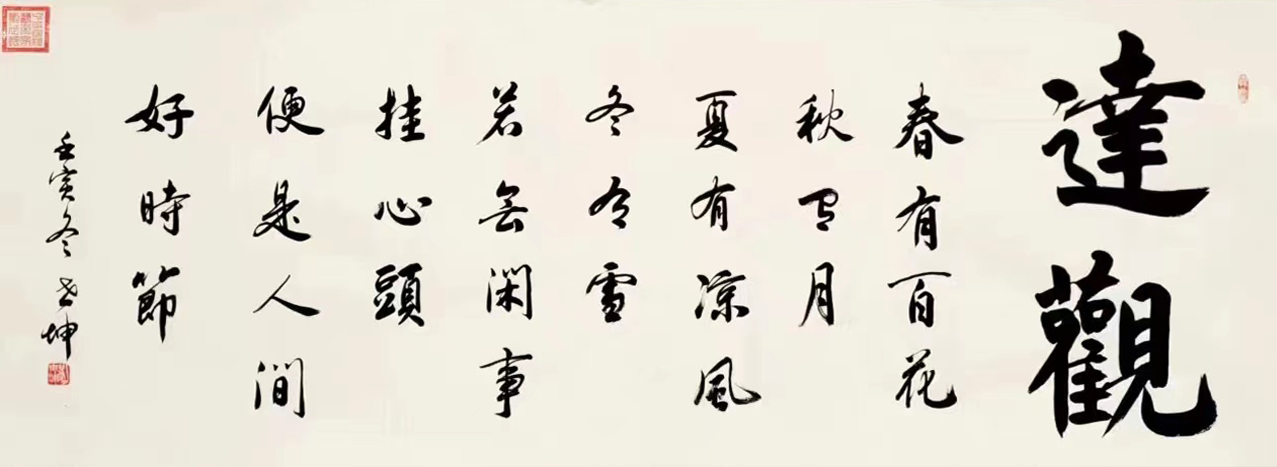 達觀
春有百花
秋有月
夏有涼風
冬有雪
若無閑事
挂心頭
便是人間
好時節
壬寅冬 坤